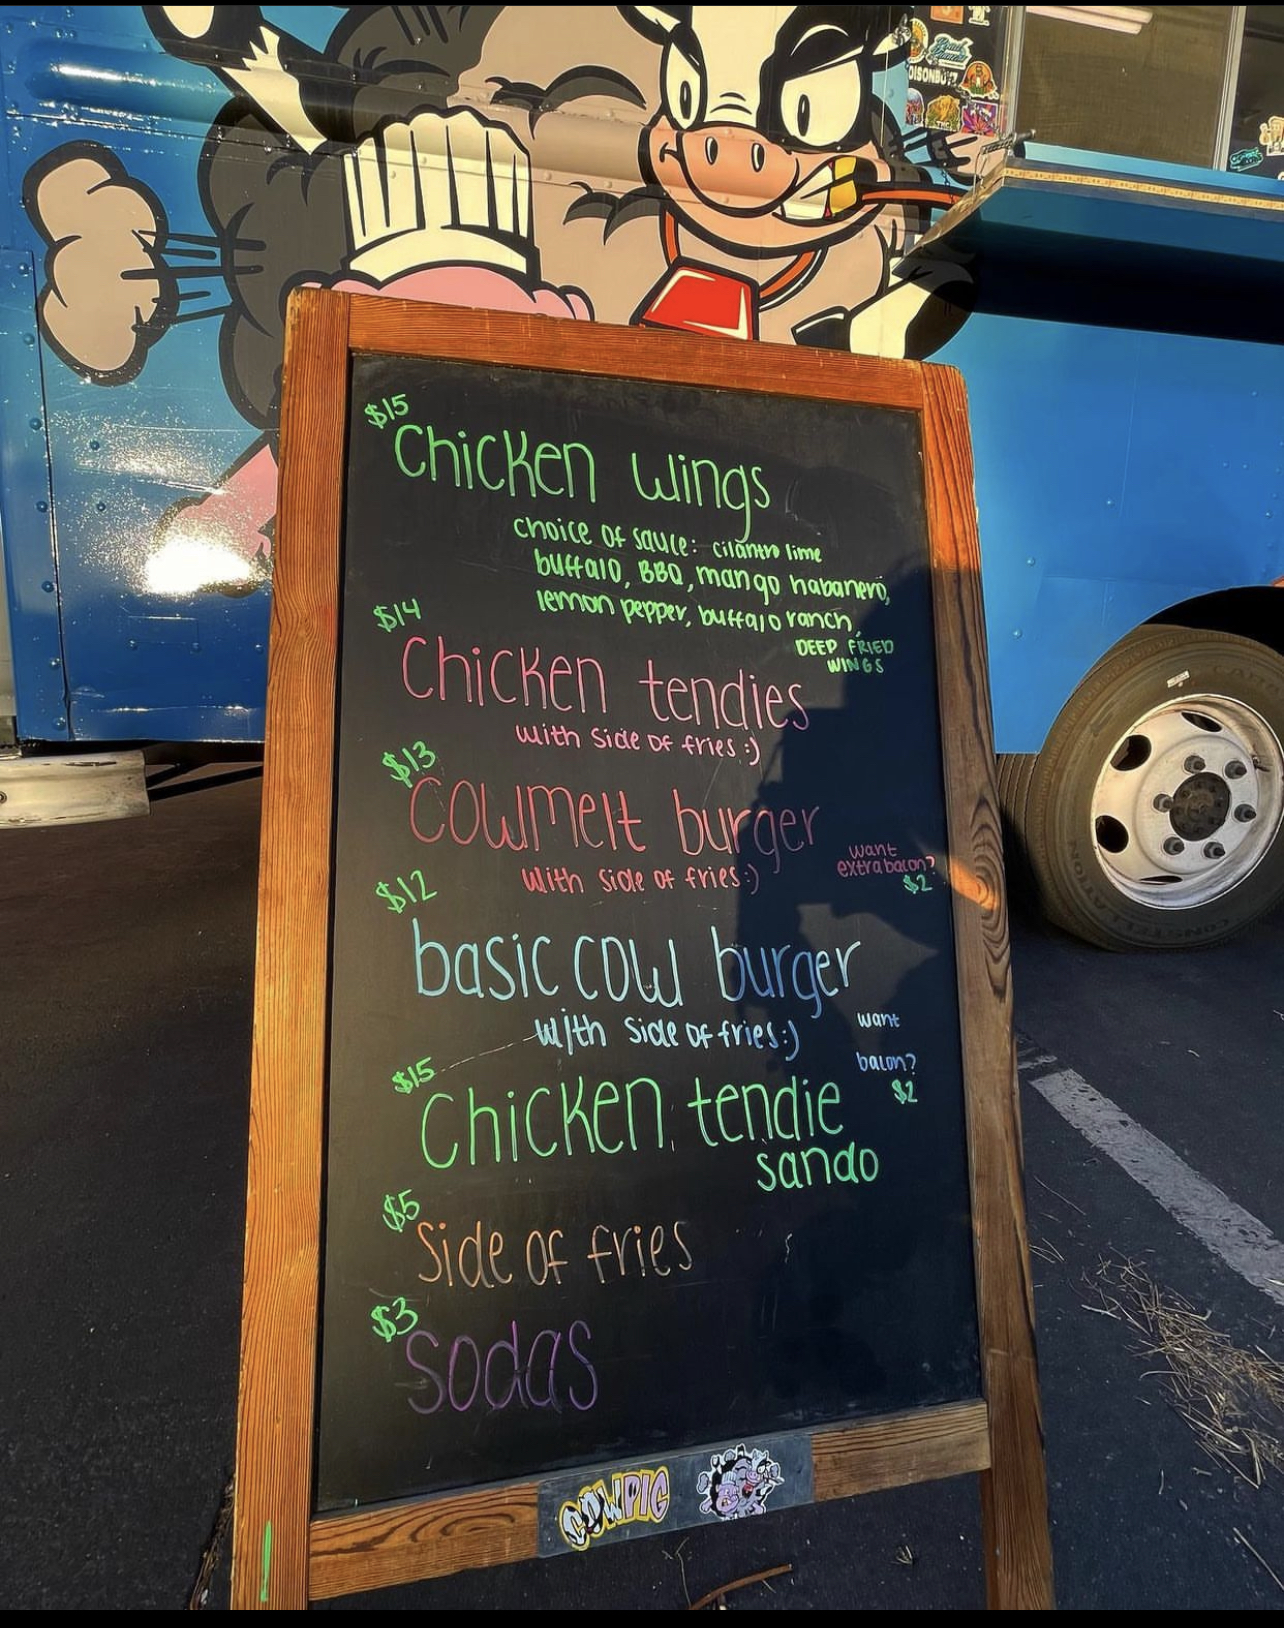 $15
Chicken wings
choice of sauce: cilantro lime
buffalo, BBQ, mango habanero,
lemon pepper, buffalo ranch,
DEEP FRIED
WINGS
$14
Chicken tendies
with side of fries :)
$13
COWMelt burger
with side of fries :)
want
extra bacon?
$2
$12
basic cow burger
with side of fries :)
want
bacon?
$2
$15
Chicken tendie
sando
$5
side of fries
$3
sodas
COWPIG